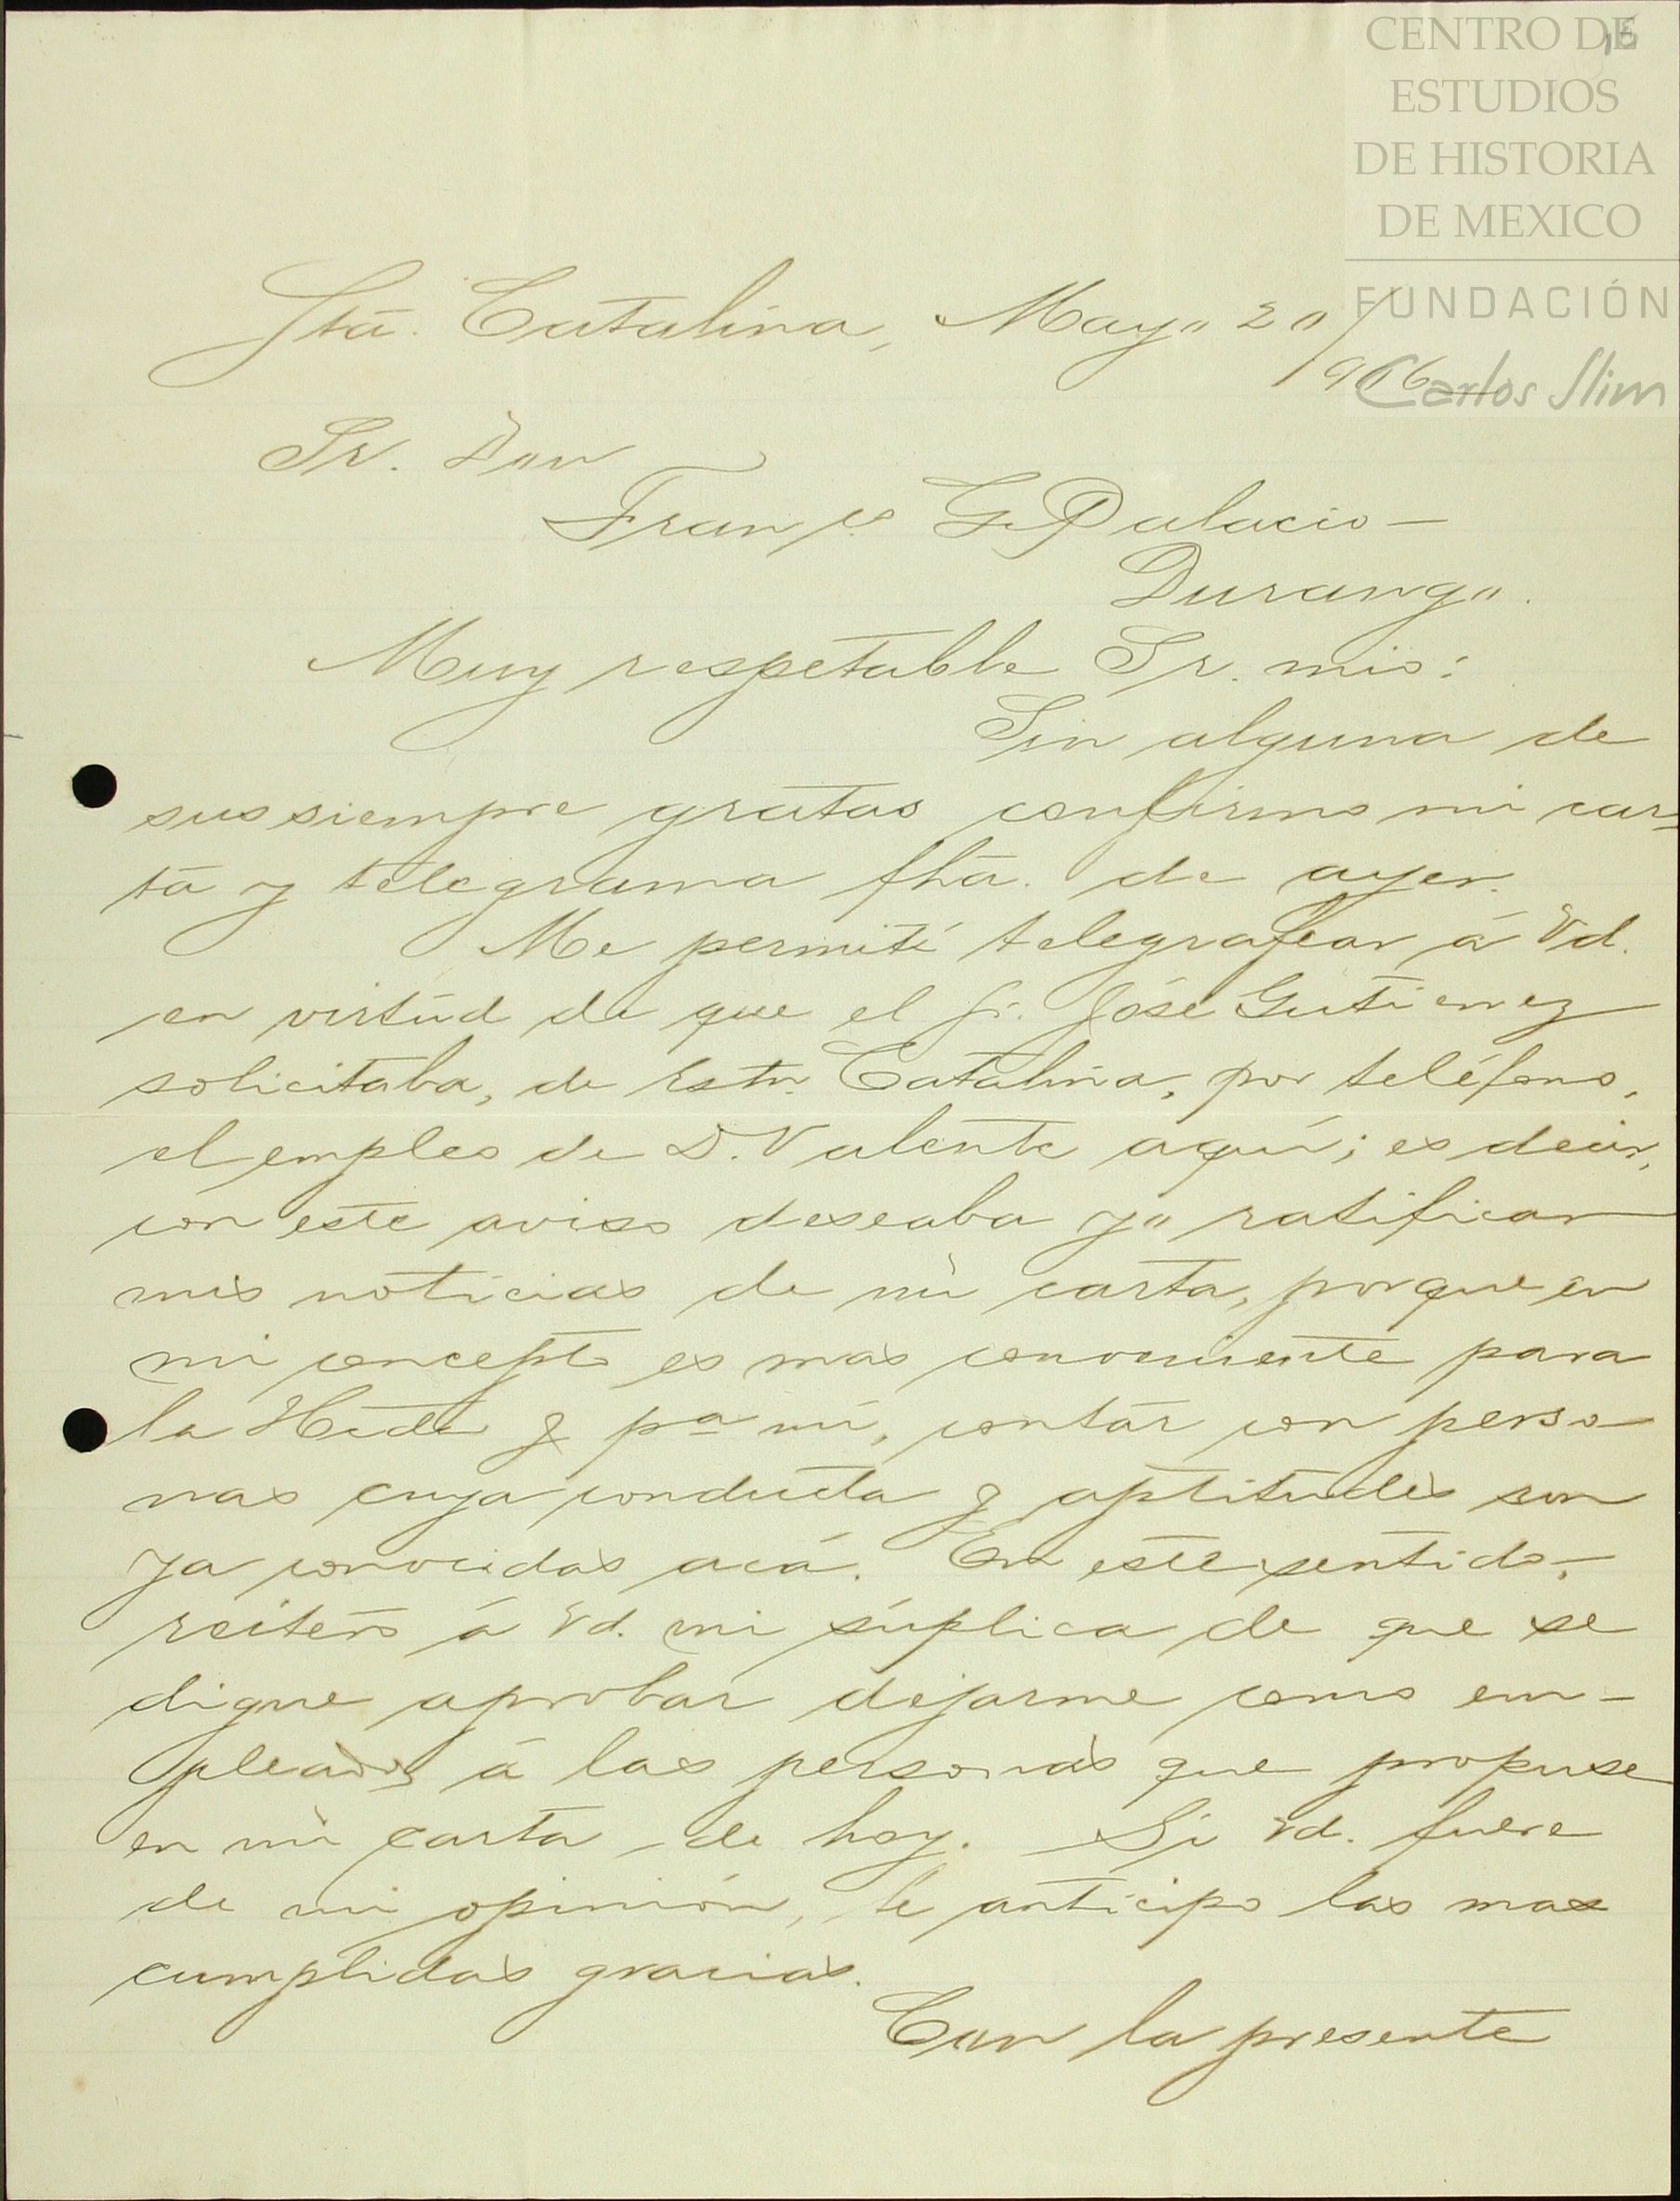 CENTRO DE
ESTUDIOS
DE HISTORIA
DE MEXICO
FUNDACIÓN
Carlos Slim
Sta. Catalina, Mayo 20/
1906
Sr. Don
Franco. G. Palacio—
Durango.
Muy respetable Sr. mio:
Sin alguna de
sus siempre gratas confirmo mi car-
ta y telegrama fha. de ayer.
Me permití telegrafear á Vd.
en virtud de que el Sr. José Gutierrez
solicitaba, de Estn. Catalina, por teléfono,
el empleo de D. Valente aquí; es decir,
con este aviso deseaba yo ratificar
mis noticias de mi carta, porque en
mi concepto es mas conveniente para
la Hcda y pa mi, contar con perso-
nas cuya conducta y aptitudes son
ya conocidas acá. En este sentido,
reitero á Vd. mi súplica de que se
digne aprobar dejarme como em-
pleados á las personas que propuse
en mi carta de hoy. Si Vd. fuere
de mi opinión, le anticipo las mas
cumplidas gracias.
Con la presente